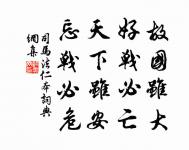 故國雖大
好戰必亡
天下雖安
忘戰必危
司馬法仁本詞典
網集